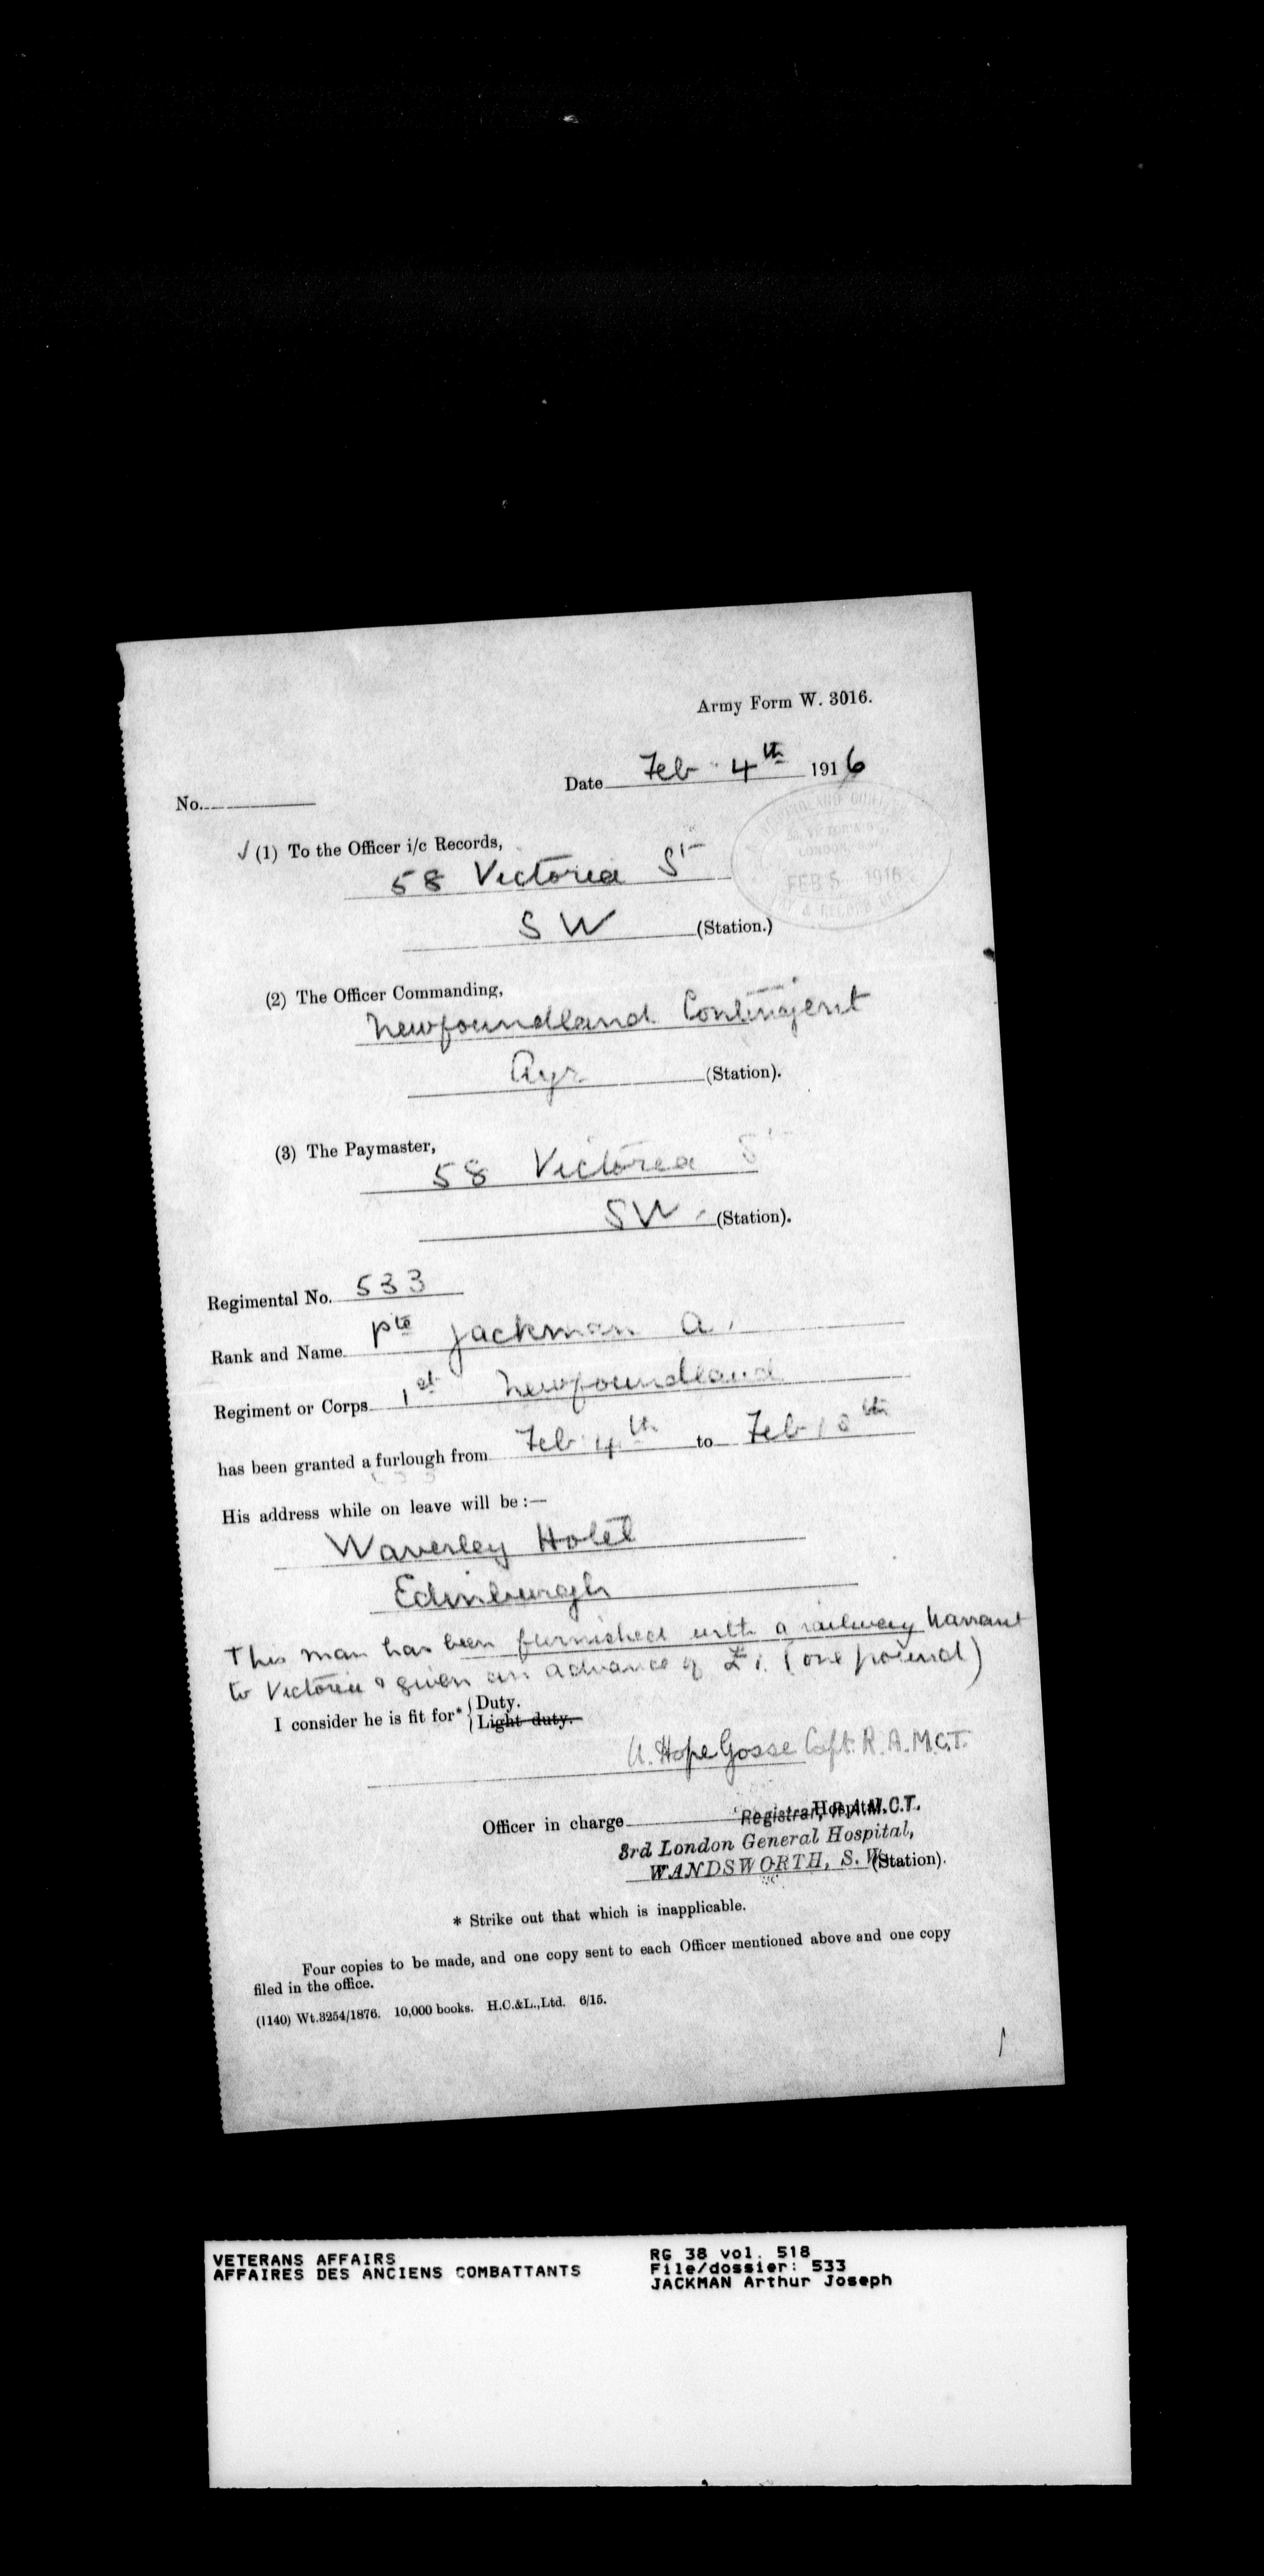 Army Form W. 3016.
No. Date Feb 4th 1916
(1) To the Officer i/c Records,
58 Victoria St
SW (Station.)
LONDON, S.W.
FEB 5 1916
(2) The Officer Commanding,
Newfoundland Contingent
Ayr (Station).
(3) The Paymaster,
58 Victoria St
SW. (Station).
Regimental No. 533
Rank and Name Pte Jackman A.
Regiment or Corps 1st Newfoundland
has been granted a furlough from Feb 4th to Feb
His address while on leave will be:—
Waverley Hotel
Edinburgh
This man has been furnished with a railway warrant
to Victoria & given an advance of £1. (one pound)
I consider he is fit for* { Duty.
Light duty.
Hope Gosse Capt. R.A.M.C.T.
Officer in charge Hospital.
Registrar, R.A.M.C.T.
3rd London General Hospital,
WANDSWORTH, S.W. (Station).
* Strike out that which is inapplicable.
Four copies to be made, and one copy sent to each Officer mentioned above and one copy
filed in the office.
(1140) Wt.3254/1876. 10,000 books. H.C.&L.,Ltd. 6/15.
VETERANS AFFAIRS
AFFAIRES DES ANCIENS COMBATTANTS
RG 38 vol. 518
File/dossier: 533
JACKMAN Arthur Joseph